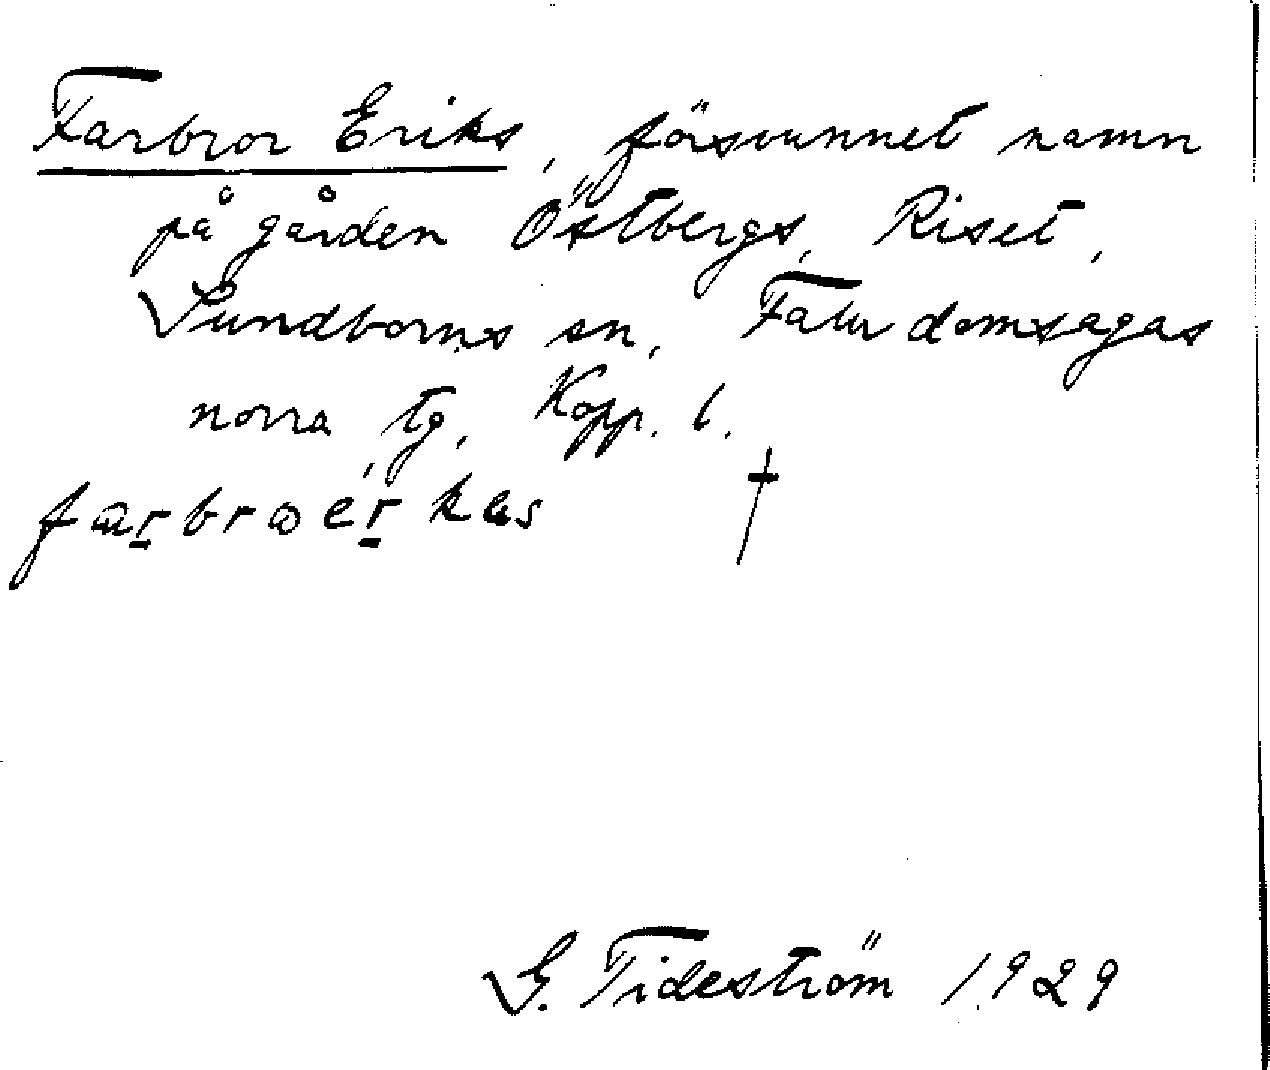 Farbror Eriks, försvunnet namn
på gården Östbergs, Riset,
Sundborns sn, Falu domsagas
norra tg, Kopp. l.
†
G. Tideström 1929